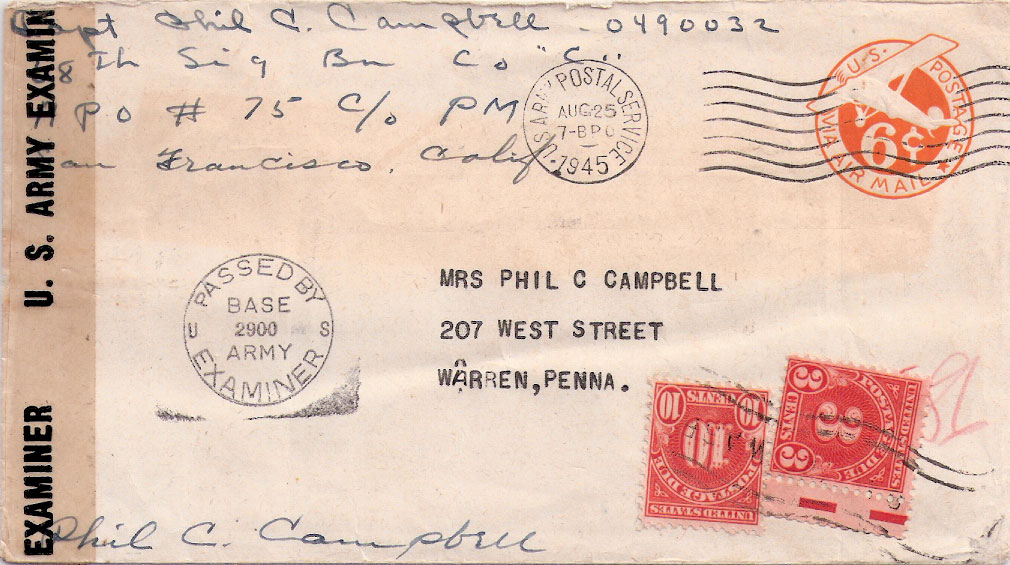 Capt Phil C. Campbell 0490032
8Th Sig Bn Co "C"
PO # 75 C/o PM
an Francisco, Calif
U.S. ARMY POSTAL SERVICE
AUG 25
7-BPO
1945
U.S. POSTAGE
6¢
VIA AIR MAIL
EXAMINER U. S. ARMY EXAMIN
PASSED BY
BASE
U 2900 S
ARMY
EXAMINER
MRS PHIL C CAMPBELL
207 WEST STREET
WARREN, PENNA.
UNITED STATES
POSTAGE DUE
10
10 CENTS 10
UNITED STATES
POSTAGE DUE
3
3 CENTS 3
Phil C. Campbell